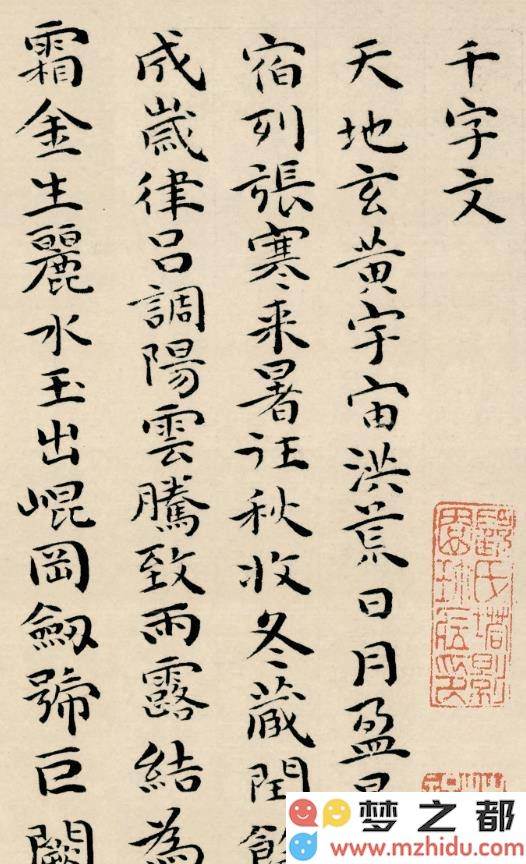 千字文
天地玄黄宇宙洪荒日月盈
宿列張寒来暑往秋收冬蔵閏餘
成歲律呂調陽雲騰致雨露結為
霜金生麗水玉出崐岡劔號巨闕
梦之都
www.mzhidu.com